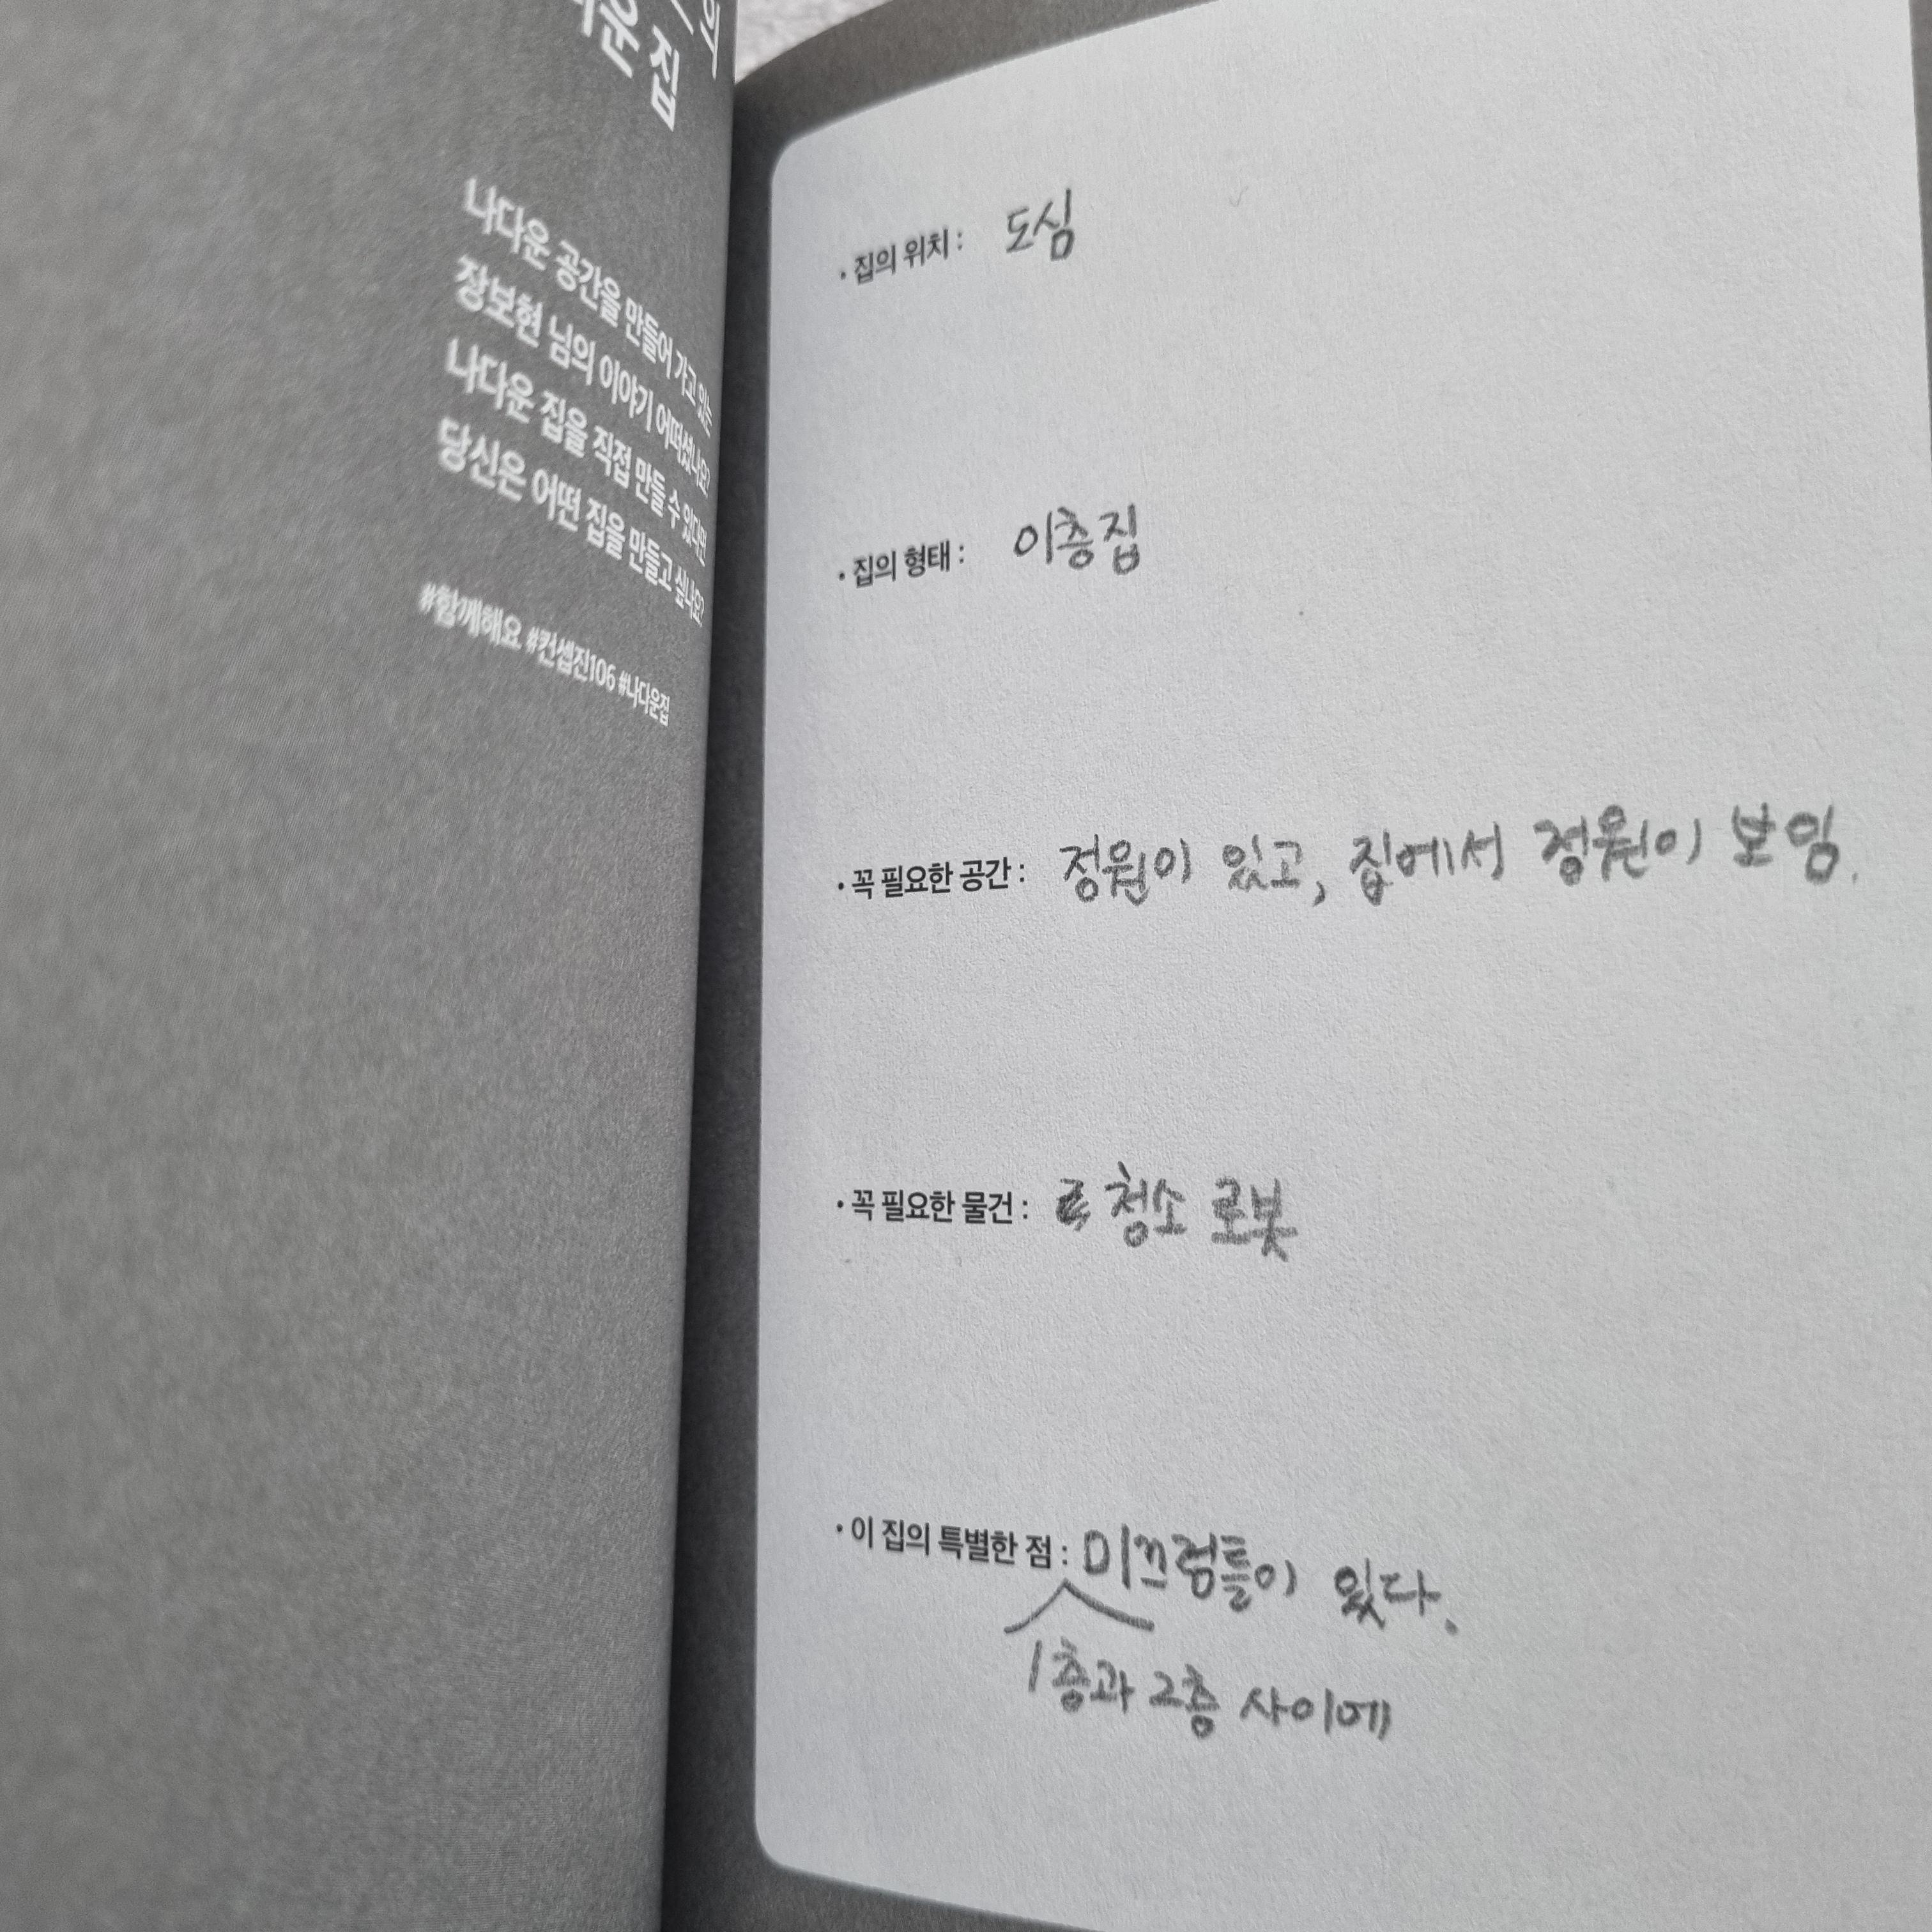 의
운 집
나다운 공간을 만들어 가고 있는
장보현 님의 이야기 어떠셨나요?
나다운 집을 직접 만들 수 있다면
당신은 어떤 집을 만들고 싶나요?
#함께해요 #컨셉진106 #나다운집
· 집의 위치 : 도심
· 집의 형태 : 이층집
· 꼭 필요한 공간 : 정원이 있고, 집에서 정원이 보임.
· 꼭 필요한 물건 : 청소 로봇
· 이 집의 특별한 점 : 미끄럼틀이 있다.
1층과 2층 사이에